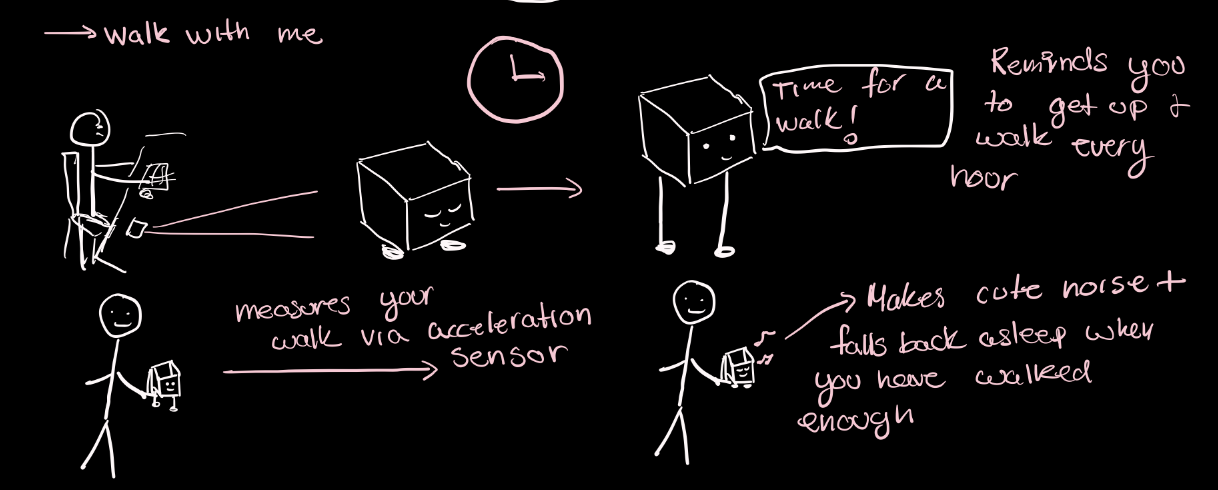 → Walk with me
Time for a
walk!
Reminds you
to get up +
walk every
hour
measures your
walk via acceleration
sensor
Makes cute noise +
falls back asleep when
you have walked
enough